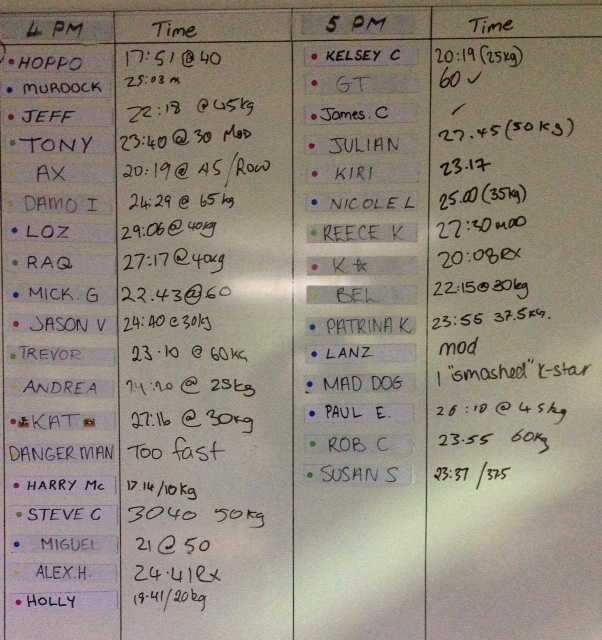 4 PM Time
HOPPO 17:51 @ 40
MURDOCK 25:03 m
JEFF 22:18 @ 45kg
TONY 23:40 @ 30 MOD
AX 20:19 @ 45/Row
DAMO I 24:29 @ 65kg
LOZ 29:06 @ 40kg
RAQ 27:17 @ 40kg
MICK. G 22.43 @ 60
JASON V 24:40 @ 30kg
TREVOR 23.10 @ 60KG
ANDREA @ 25kg
KAT 27:16 @ 30kg
DANGERMAN Too fast
HARRY Mc 17.14/10kg
STEVE C 3040 50kg
MIGUEL 21 @ 50
ALEX.H. 24.41 Rx
HOLLY 19.41/20kg
5 PM Time
KELSEY C 20:19 (25kg)
GT 60 ✓
James. C
JULIAN 27.45 (50kg)
KIRI 23.17
NICOLE L 25.00 (35kg)
REECE K 27:30 mod
K☆ 20:08 RX
BEL 22:15 @ 30kg
PATRINA K 23:55 37.5KG.
LANZ mod
MAD DOG I "smashed" K-star
PAUL E. 26:10 @ 45kg
ROB C 23.55 60kg
SUSAN S 23:37 /375